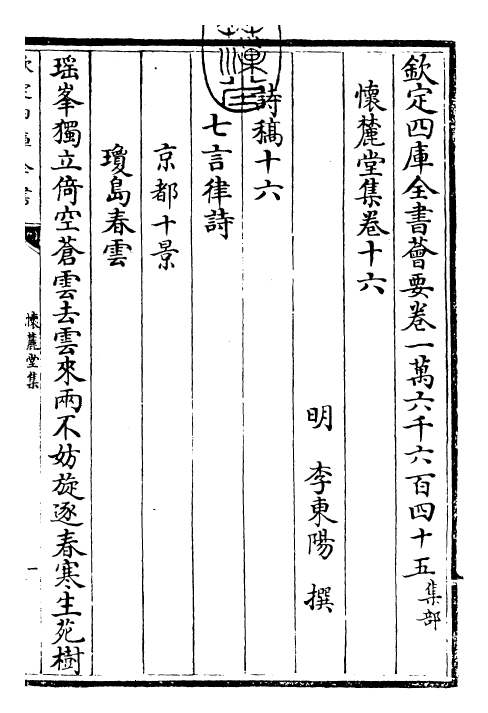 欽定四庫全書薈要卷一萬六千六百四十五集部
懷麓堂集卷十六
明 李東陽 撰
詩稿十六
七言律詩
京都十景
瓊島春雲
瑶峯獨立倚空蒼雲去雲來兩不妨旋逐春寒生苑樹
懷麓堂集
一